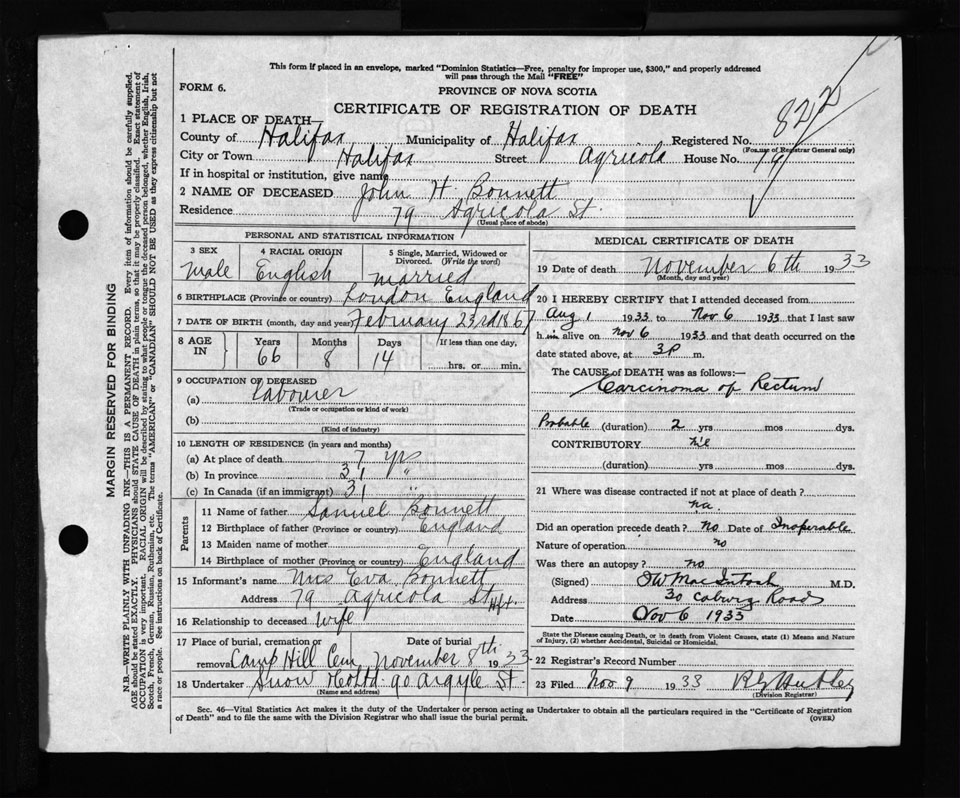 This form if placed in an envelope, marked "Dominion Statistics—Free, penalty for improper use, $300," and properly addressed
will pass through the Mail "FREE"
FORM 6.
PROVINCE OF NOVA SCOTIA
CERTIFICATE OF REGISTRATION OF DEATH
822
1 PLACE OF DEATH—
County of Halifax Municipality of Halifax Registered No.
(For use of Registrar General only)
City or Town Halifax Street Agricola House No. 79
If in hospital or institution, give name
2 NAME OF DECEASED John H. Bonnett
Residence 79 Agricola St.
(Usual place of abode)
PERSONAL AND STATISTICAL INFORMATION
3 SEX 4 RACIAL ORIGIN 5 Single, Married, Widowed or
Divorced. (Write the word)
Male English married
6 BIRTHPLACE (Province or country) London England
7 DATE OF BIRTH (month, day and year) February 23rd 1867
8 AGE IN Years Months Days If less than one day,
66 8 14 hrs. or min.
9 OCCUPATION OF DECEASED
(a) labourer
(Trade or occupation or kind of work)
(b)
(Kind of industry)
10 LENGTH OF RESIDENCE (in years and months)
(a) At place of death 7 yrs
(b) In province 31 "
(c) In Canada (if an immigrant) 31 "
Parents
11 Name of father Samuel Bonnett
12 Birthplace of father (Province or country) England
13 Maiden name of mother
14 Birthplace of mother (Province or country) England
15 Informant's name Mrs Eva Bonnett
Address 79 Agricola St Hfx.
16 Relationship to deceased wife
17 Place of burial, cremation or Date of burial
removal Camp Hill Cem November 8th 1933
18 Undertaker Snow & Co Ltd 90 Argyle St.
(Name and address)
MEDICAL CERTIFICATE OF DEATH
19 Date of death November 6th 1933
(Month, day and year)
20 I HEREBY CERTIFY that I attended deceased from
Aug 1 1933 to Nov 6 1933 that I last saw
h im alive on Nov 6 1933 and that death occurred on the
date stated above, at 3P m.
The CAUSE of DEATH was as follows:—
Carcinoma of Rectum
Probable (duration) 2 yrs mos dys.
CONTRIBUTORY nil
(duration) yrs mos dys.
21 Where was disease contracted if not at place of death?
na.
Did an operation precede death? no Date of Inoperable
Nature of operation no
Was there an autopsy? no
(Signed) MacIntosh M.D.
Address 30 Coburg Road
Date Nov 6 1933
State the Disease causing Death, or in death from Violent Causes, state (1) Means and Nature
of Injury, (2) whether Accidental, Suicidal or Homicidal.
22 Registrar's Record Number
23 Filed Nov 9 1933
(Division Registrar)
Sec. 46—Vital Statistics Act makes it the duty of the Undertaker or person acting as Undertaker to obtain all the particulars required in the "Certificate of Registration
of Death" and to file the same with the Division Registrar who shall issue the burial permit. (OVER)
MARGIN RESERVED FOR BINDING
N.B.—WRITE PLAINLY WITH UNFADING INK—THIS IS A PERMANENT RECORD. Every item of information should be carefully supplied.
AGE should be stated EXACTLY. PHYSICIANS should STATE CAUSE OF DEATH in plain terms, so that it may be properly classified. Exact statement of
OCCUPATION is very important. RACIAL ORIGIN will be described by stating to what people or tongue the deceased person belonged, whether English, Irish,
Scotch, French, German, Russian, Ruthenian, etc. The terms "AMERICAN" or "CANADIAN" SHOULD NOT BE USED as they express citizenship but not
a race or people. See instructions on back of Certificate.